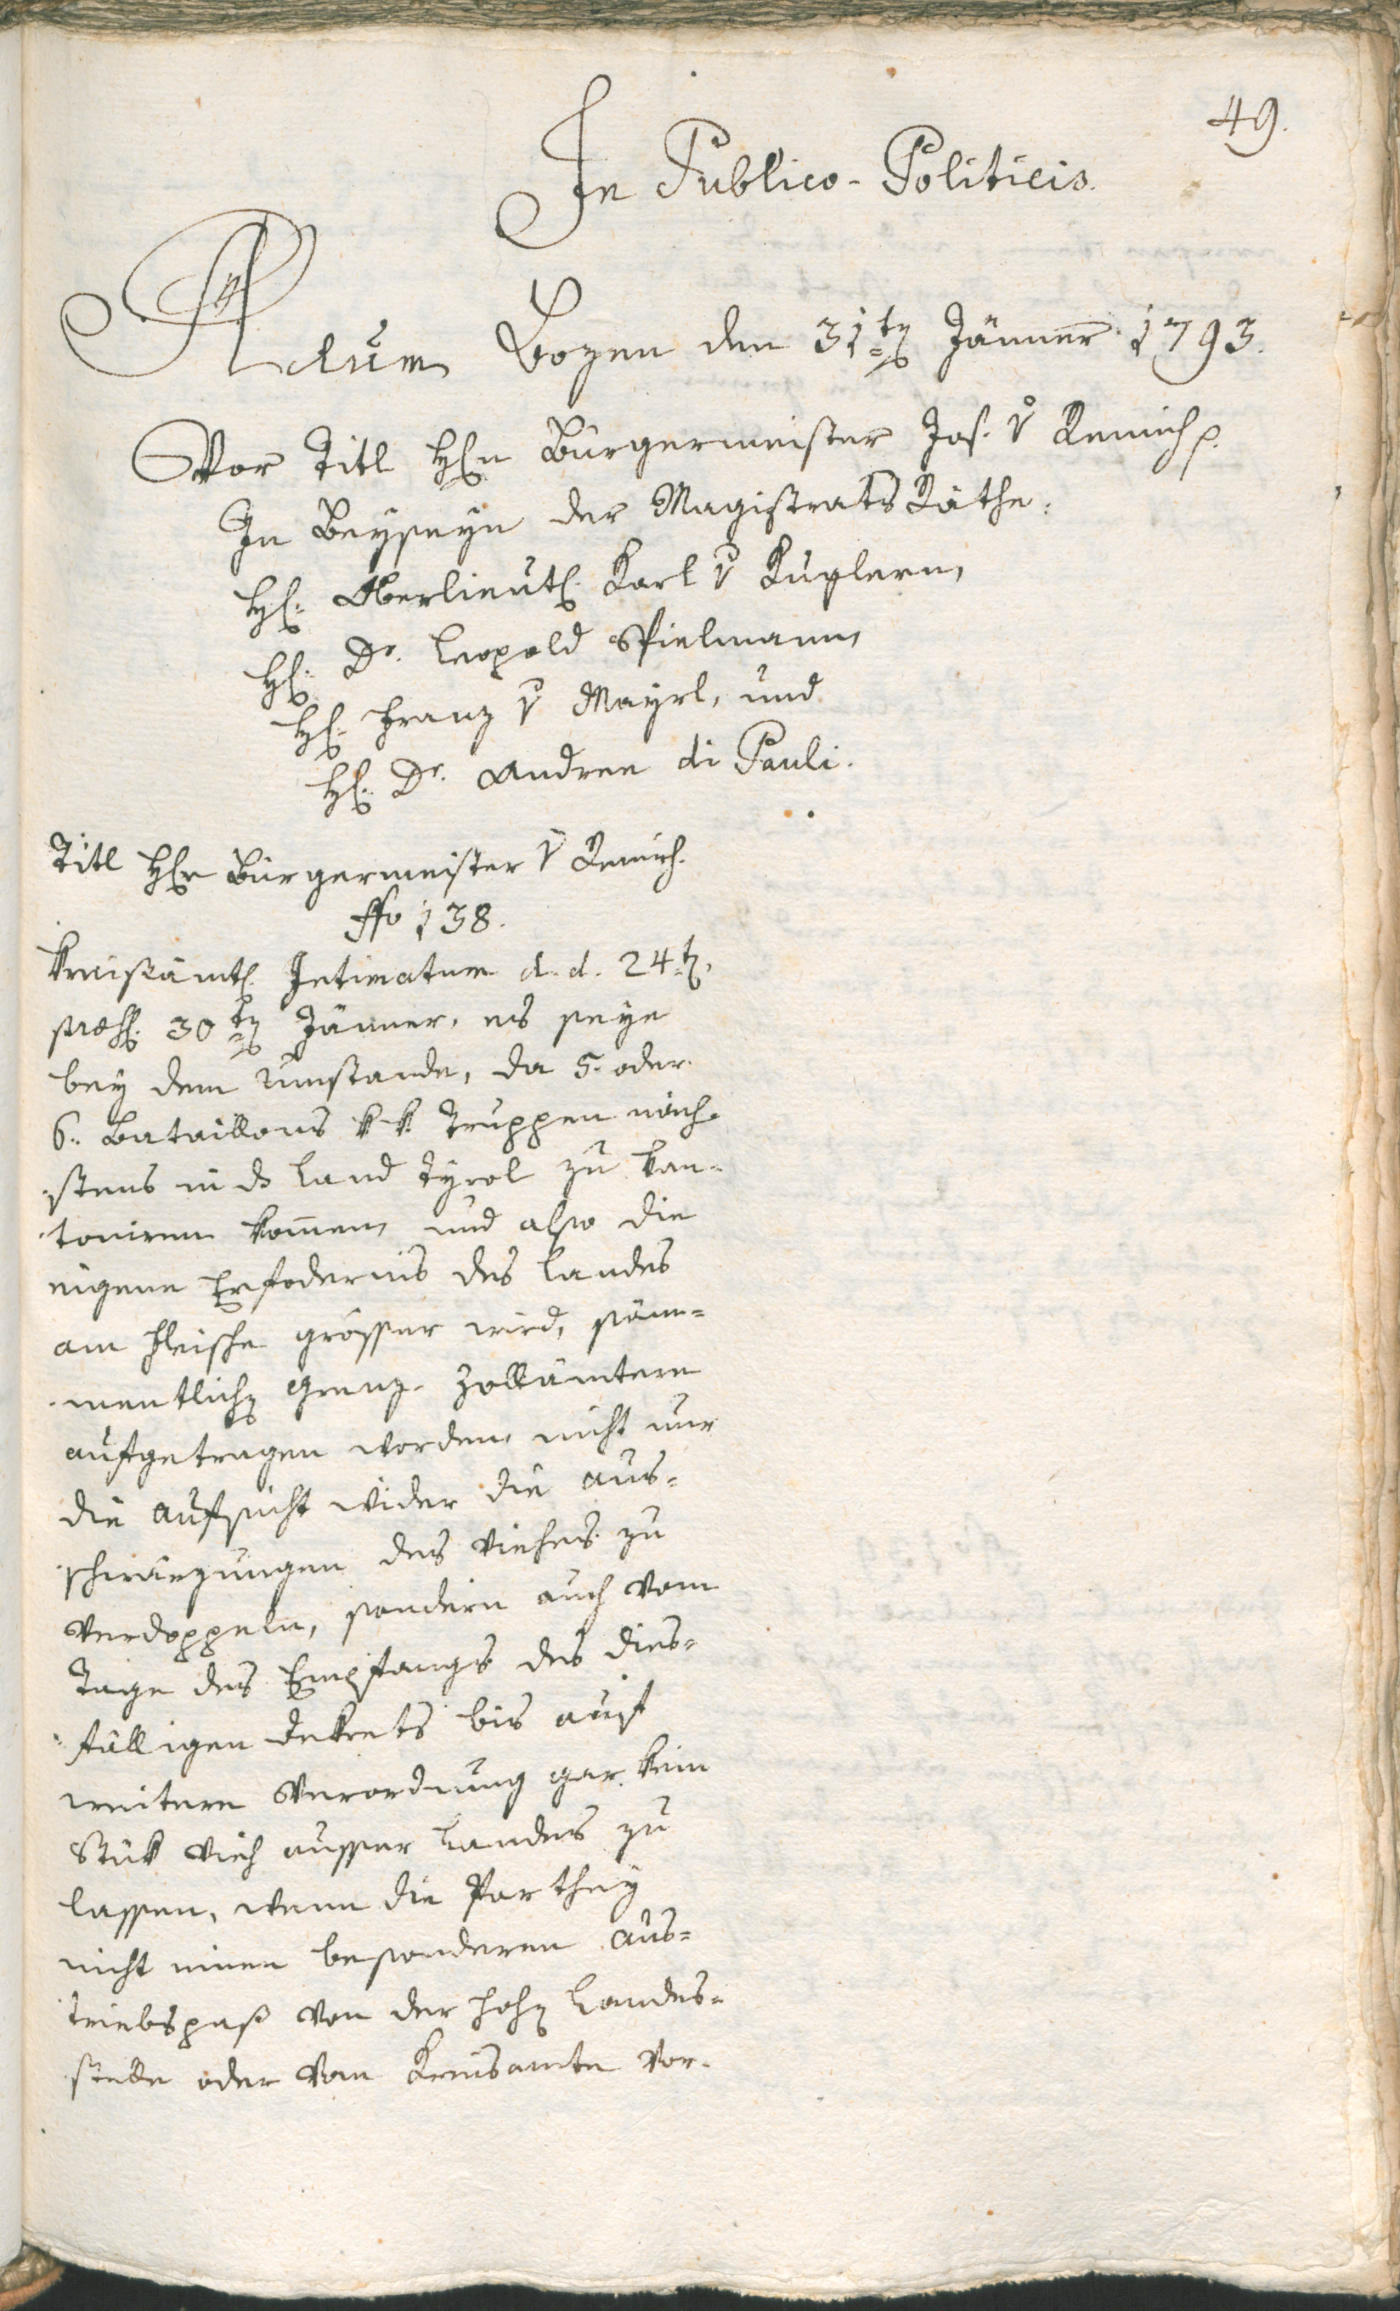 49.
In Publico-Politicis.
Actum Bozen den 31ten Jänner 1793.
Vor Titl Hrn Bürgermeister Jos. v Remich p.
In Beyseyn der Magistrats Räthe:
H: Oberlieut: Karl v Kuglern,
H: Dr. Leopold Spielmann,
H: Franz v Mayrl, und
H: Dr. Andree di Pauli.
Titl Hrn Bürgermeister v Remich.
No 138.
Kreisämtl: Intimatum d. d. 24ten,
præs: 30ten Jänner, es seye
bey dem Umstande, da 5. oder
6. Bataillons k. k. Truppen näch-
stens in ds Land Tyrol zu kan-
toniren kom̄en, und also die
eigene Erfodernis des Landes
am Fleische grösser wird, säm-
mentlichen Grenz-Zollämtern
aufgetragen worden, nicht nur
die Aufsicht wider die Aus-
schwärzungen des Viehes zu
verdoppeln, sondern auch vom
Tage des Empfangs des dies-
fälligen Dekrets bis auf
weitere Verordnung gar kein
Stük Vieh ausser Landes zu
lassen, wenn die Parthey
nicht einen besonderen Aus-
triebspaß von der hohen Landes-
stelle oder vom Kreisamte vor-